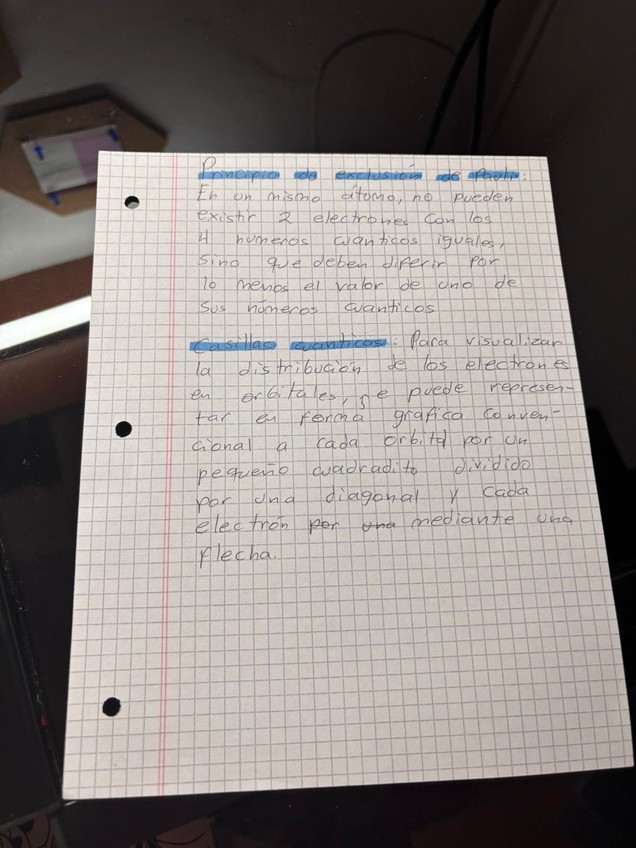 Principio de exclusión de Pauli:
En un mismo átomo, no pueden
existir 2 electrones con los
4 números cuanticos iguales,
sino que deben diferir por
lo menos el valor de uno de
sus números cuanticos
Casillas cuanticas: Para visualizar
la distribución de los electrones
en orbitales, se puede represen-
tar en forma grafica conven-
cional a cada orbital por un
pequeño cuadradito dividido
por una diagonal y cada
electrón por una mediante una
flecha.